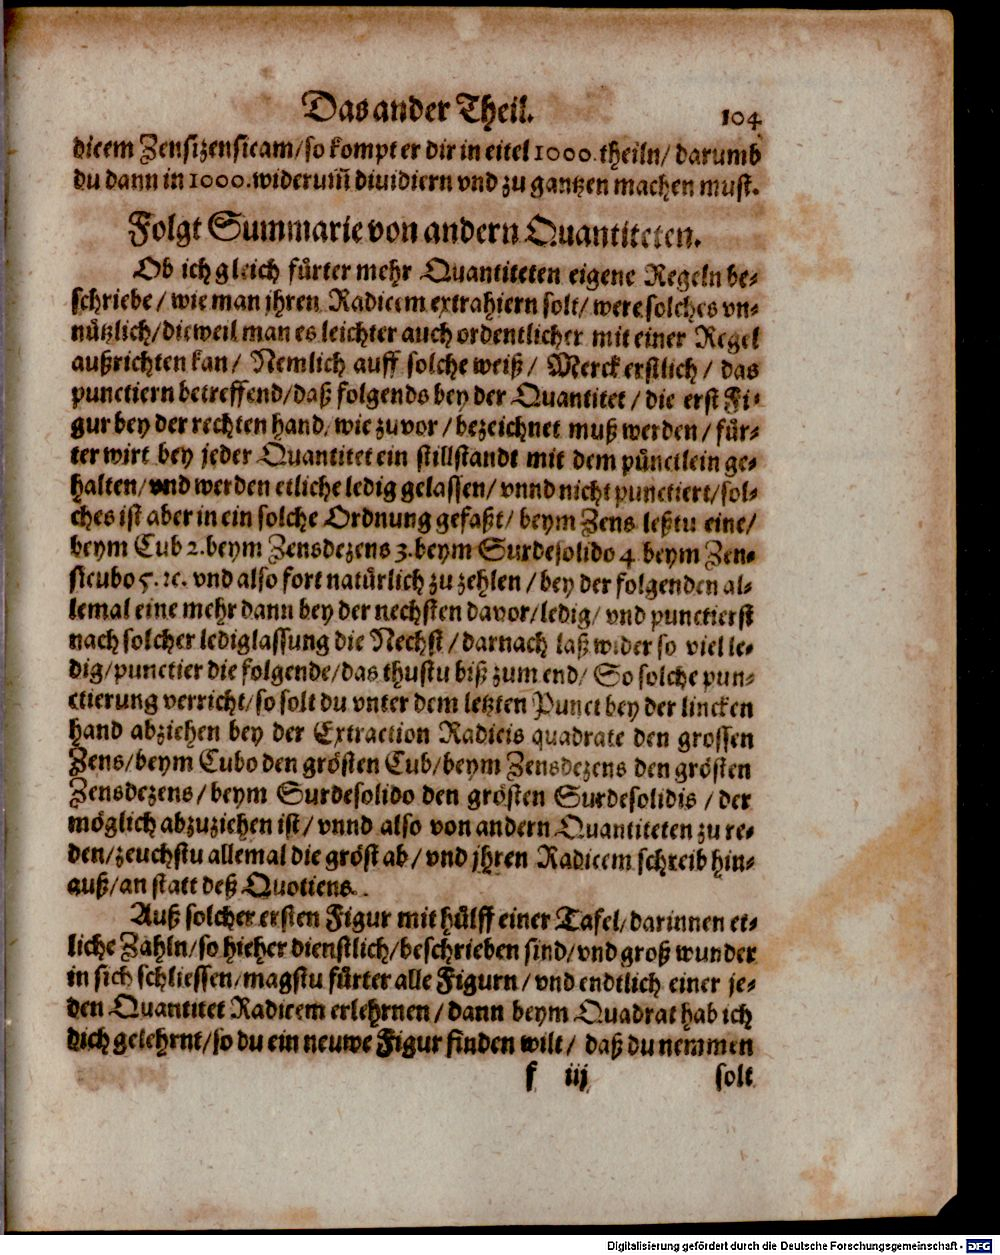 Das ander Theil. 104
dicem Zensizensicam/so kompt er dir in eitel 1000. theiln/ darumb
du dann in 1000. widerum̃ dividiern vnd zu gantzen machen must.
Folgt Summarie von andern Quantiteten.
Ob ich gleich fürter mehr Quantiteten eigene Regeln be-
schriebe/ wie man jhren Radicem extrahiern solt/ were solches vn-
nützlich/dieweil man es leichter auch ordentlicher mit einer Regel
außrichten kan/ Nemlich auff solche weiß/ Merck erstlich/ das
punctiern betreffend/daß folgends bey der Quantitet/ die erst Fi-
gur bey der rechten hand/ wie zuvor/ bezeichnet muß werden/ für-
ter wirt bey jeder Quantitet ein stillstandt mit dem pünctlein ge-
halten/ vnd werden etliche ledig gelassen/ vnnd nicht punctiert/sol-
ches ist aber in ein solche Ordnung gefaßt/ beym Zens leßtu eine/
beym Cub 2. beym Zensdezens 3. beym Surdesolido 4 beym Zen-
sicubo 5. ꝛc. vnd also fort natürlich zu zehlen/ bey der folgenden al-
lemal eine mehr dann bey der nechsten davor/ledig/ vnd punctierst
nach solcher lediglassung die Nechst/ darnach laß wider so viel le-
dig/punctier die folgende/das thustu biß zum end/ So solche pun-
ctierung verricht/so solt du vnter dem letzten Punct bey der lincken
hand abziehen bey der Extraction Radicis quadrate den grossen
Zens/beym Cubo den grösten Cub/beym Zensdezens den grösten
Zensdezens/ beym Surdesolido den grösten Surdesolidis/ der
möglich abzuziehen ist/ vnnd also von andern Quantiteten zu re-
den/zeuchstu allemal die gröst ab/ vnd jhren Radicem schreib hin-
auß/an statt deß Quotiens.
Auß solcher ersten Figur mit hülff einer Tafel/darinnen et-
liche Zahln/so hieher dienstlich/beschrieben sind/vnd groß wunder
in sich schliessen/magstu fürter alle Figurn/ vnd endtlich einer je-
den Quantitet Radicem erlehrnen/ dann beym Quadrat hab ich
dich gelehrnt/so du ein neuwe Figur finden wilt/ daß du nemmen
f iij solt
Digitalisierung gefördert durch die Deutsche Forschungsgemeinschaft - DFG